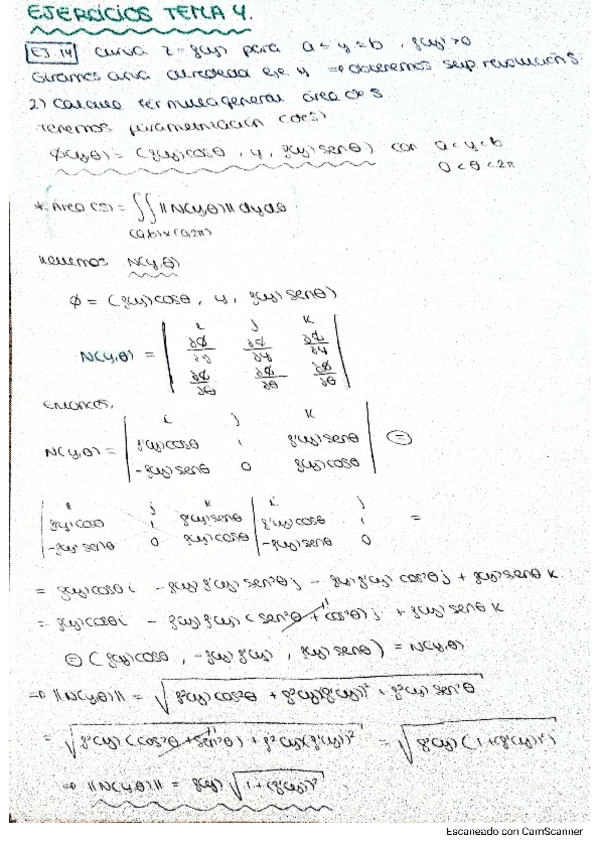 EJERCICIOS TEMA 4.
EJ. 14 curva z = g(y) para a ≤ y ≤ b, g(y) > 0
Giramos curva alrededor eje y ⇒ obtenemos sup. revolución S
2) Calcula fórmula general área de S
Tenemos parametrización (de S)
Φ(y,θ) = (g(y) cosθ, y, g(y) senθ) con a < y < b
0 < θ < 2π
* Área (S) = ∬ ||N(y,θ)|| dy dθ
(a,b)×(0,2π)
N(y,θ)
Φ = (g(y) cosθ, y, g(y) senθ)
i j k
N(y,θ) = | ∂Φ/∂y ∂Φ/∂y ∂Φ/∂y |
| ∂Φ/∂θ ∂Φ/∂θ ∂Φ/∂θ |
Entonces,
i j k
N(y,θ) = | g'(y) cosθ 1 g'(y) senθ | =
| -g(y) senθ 0 g(y) cosθ |
i j k i j
| g'(y) cosθ 1 g'(y) senθ | g'(y) cosθ 1 =
| -g(y) senθ 0 g(y) cosθ | -g(y) senθ 0
= g(y) cosθ i - g(y) g'(y) sen²θ j - g(y) g'(y) cos²θ j + g(y) senθ k
= g(y) cosθ i - g(y) g'(y) (sen²θ + cos²θ) j + g(y) senθ k
= (g(y) cosθ, -g(y) g'(y), g(y) senθ) = N(y,θ)
⇒ ||N(y,θ)|| = √(g²(y) cos²θ + g²(y)(g'(y))² + g²(y) sen²θ)
= √(g²(y) (cos²θ + sen²θ) + g²(y)(g'(y))²) = √(g²(y) (1 + (g'(y))²))
⇒ ||N(y,θ)|| = g(y) √(1 + (g'(y))²)
Escaneado con CamScanner